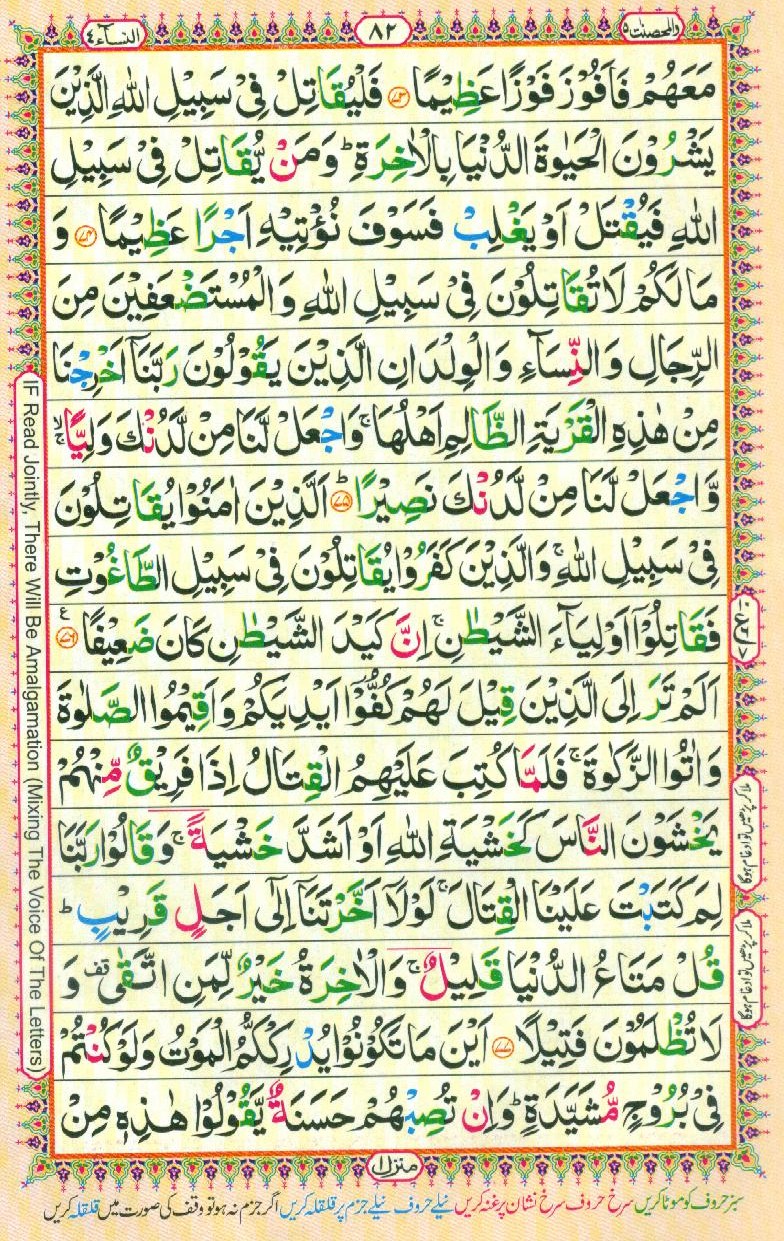 والمحصنت ۵
۸۲
النسآء ۴
مَعَهُمْ فَاَفُوْزَ فَوْزًا عَظِيْمًا ﴿۷۳﴾ فَلْيُقَاتِلْ فِيْ سَبِيْلِ اللهِ الَّذِيْنَ
يَشْرُوْنَ الْحَيٰوةَ الدُّنْيَا بِالْاٰخِرَةِ ؕ وَمَنْ يُّقَاتِلْ فِيْ سَبِيْلِ
اللهِ فَيُقْتَلْ اَوْ يَغْلِبْ فَسَوْفَ نُؤْتِيْهِ اَجْرًا عَظِيْمًا ﴿۷۴﴾ وَ
مَا لَكُمْ لَا تُقَاتِلُوْنَ فِيْ سَبِيْلِ اللهِ وَ الْمُسْتَضْعَفِيْنَ مِنَ
الرِّجَالِ وَ النِّسَآءِ وَ الْوِلْدَانِ الَّذِيْنَ يَقُوْلُوْنَ رَبَّنَاۤ اَخْرِجْنَا
مِنْ هٰذِهِ الْقَرْيَةِ الظَّالِمِ اَهْلُهَا ۚ وَاجْعَلْ لَّنَا مِنْ لَّدُنْكَ وَلِيًّا ۙۚ
وَّاجْعَلْ لَّنَا مِنْ لَّدُنْكَ نَصِيْرًا ﴿۷۵﴾ؕ اَلَّذِيْنَ اٰمَنُوْا يُقَاتِلُوْنَ
فِيْ سَبِيْلِ اللهِ ۚ وَالَّذِيْنَ كَفَرُوْا يُقَاتِلُوْنَ فِيْ سَبِيْلِ الطَّاغُوْتِ
فَقَاتِلُوْۤا اَوْلِيَآءَ الشَّيْطٰنِ ۚ اِنَّ كَيْدَ الشَّيْطٰنِ كَانَ ضَعِيْفًا ﴿۷۶﴾
اَلَمْ تَرَ اِلَى الَّذِيْنَ قِيْلَ لَهُمْ كُفُّوْۤا اَيْدِيَكُمْ وَاَقِيْمُوا الصَّلٰوةَ
وَاٰتُوا الزَّكٰوةَ ۚ فَلَمَّا كُتِبَ عَلَيْهِمُ الْقِتَالُ اِذَا فَرِيْقٌ مِّنْهُمْ
يَخْشَوْنَ النَّاسَ كَخَشْيَةِ اللهِ اَوْ اَشَدَّ خَشْيَةً ۚ وَقَالُوْا رَبَّنَا
لِمَ كَتَبْتَ عَلَيْنَا الْقِتَالَ ۚ لَوْلَاۤ اَخَّرْتَنَاۤ اِلٰۤى اَجَلٍ قَرِيْبٍ ؕ
قُلْ مَتَاعُ الدُّنْيَا قَلِيْلٌ ۚ وَالْاٰخِرَةُ خَيْرٌ لِّمَنِ اتَّقٰى ۟قف وَ
لَا تُظْلَمُوْنَ فَتِيْلًا ﴿۷۷﴾ اَيْنَ مَا تَكُوْنُوْا يُدْرِكْكُّمُ الْمَوْتُ وَلَوْ كُنْتُمْ
فِيْ بُرُوْجٍ مُّشَيَّدَةٍ ؕ وَاِنْ تُصِبْهُمْ حَسَنَةٌ يَّقُوْلُوْا هٰذِهٖ مِنْ
IF Read Jointly, There Will Be Amalgamation (Mixing The Voice Of The Letters)
منزل ۱
سبز حروف کو موٹا کریں سرخ حروف سرخ نشان پر غنہ کریں نیلے حروف نیلے جزم پر قلقلہ کریں اگر جزم نہ ہو تو وقف کی صورت میں قلقلہ کریں